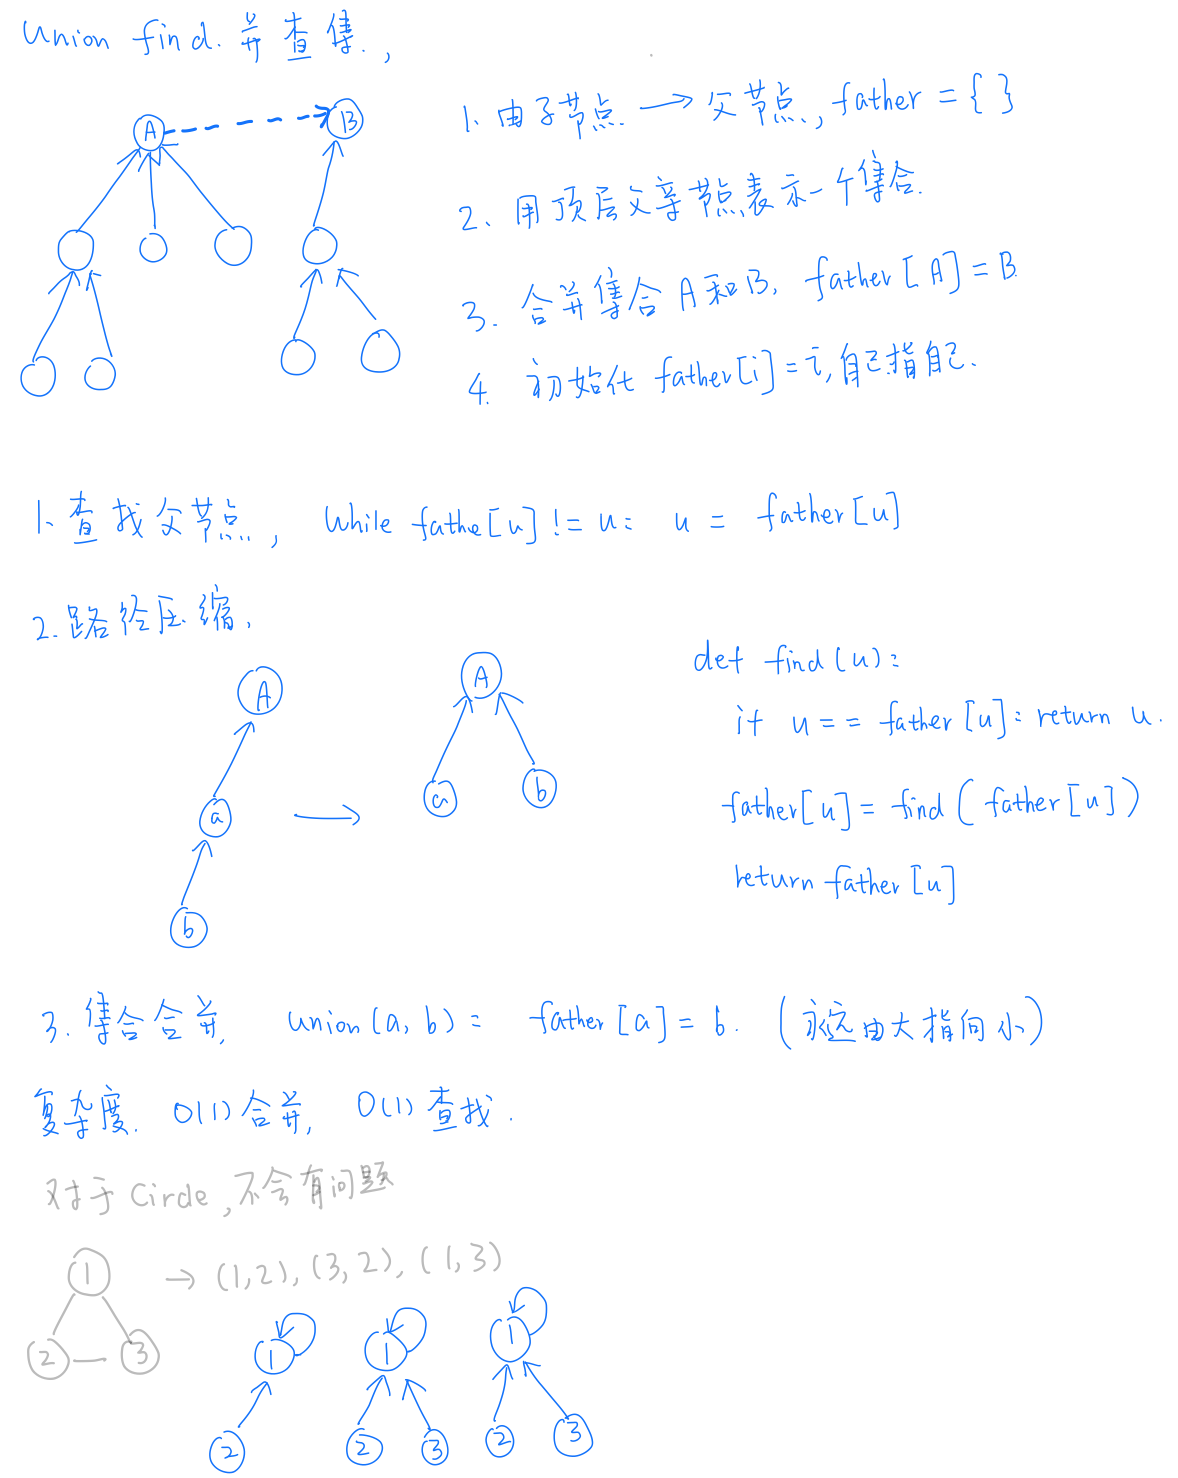 Union find. 并查集.,
A
B
1. 由子节点 → 父节点, father = { }
2. 用顶层父亲节点表示一个集合.
3. 合并集合A和B, father[A] = B
4. 初始化 father[i] = i, 自己指自己.
1. 查找父节点, While fathe[u] != u: u = father[u]
2. 路径压缩.
A
a
b
→
A
a
b
def find(u):
if u == father[u]: return u.
father[u] = find(father[u])
return father[u]
3. 集合合并, union(a, b) = father[a] = b. (永远由大指向小)
复杂度. O(1)合并, O(1)查找.
对于Circle, 不会有问题
1
2
3
→ (1,2), (3,2), (1,3)
1
2
1
2
3
1
2
3